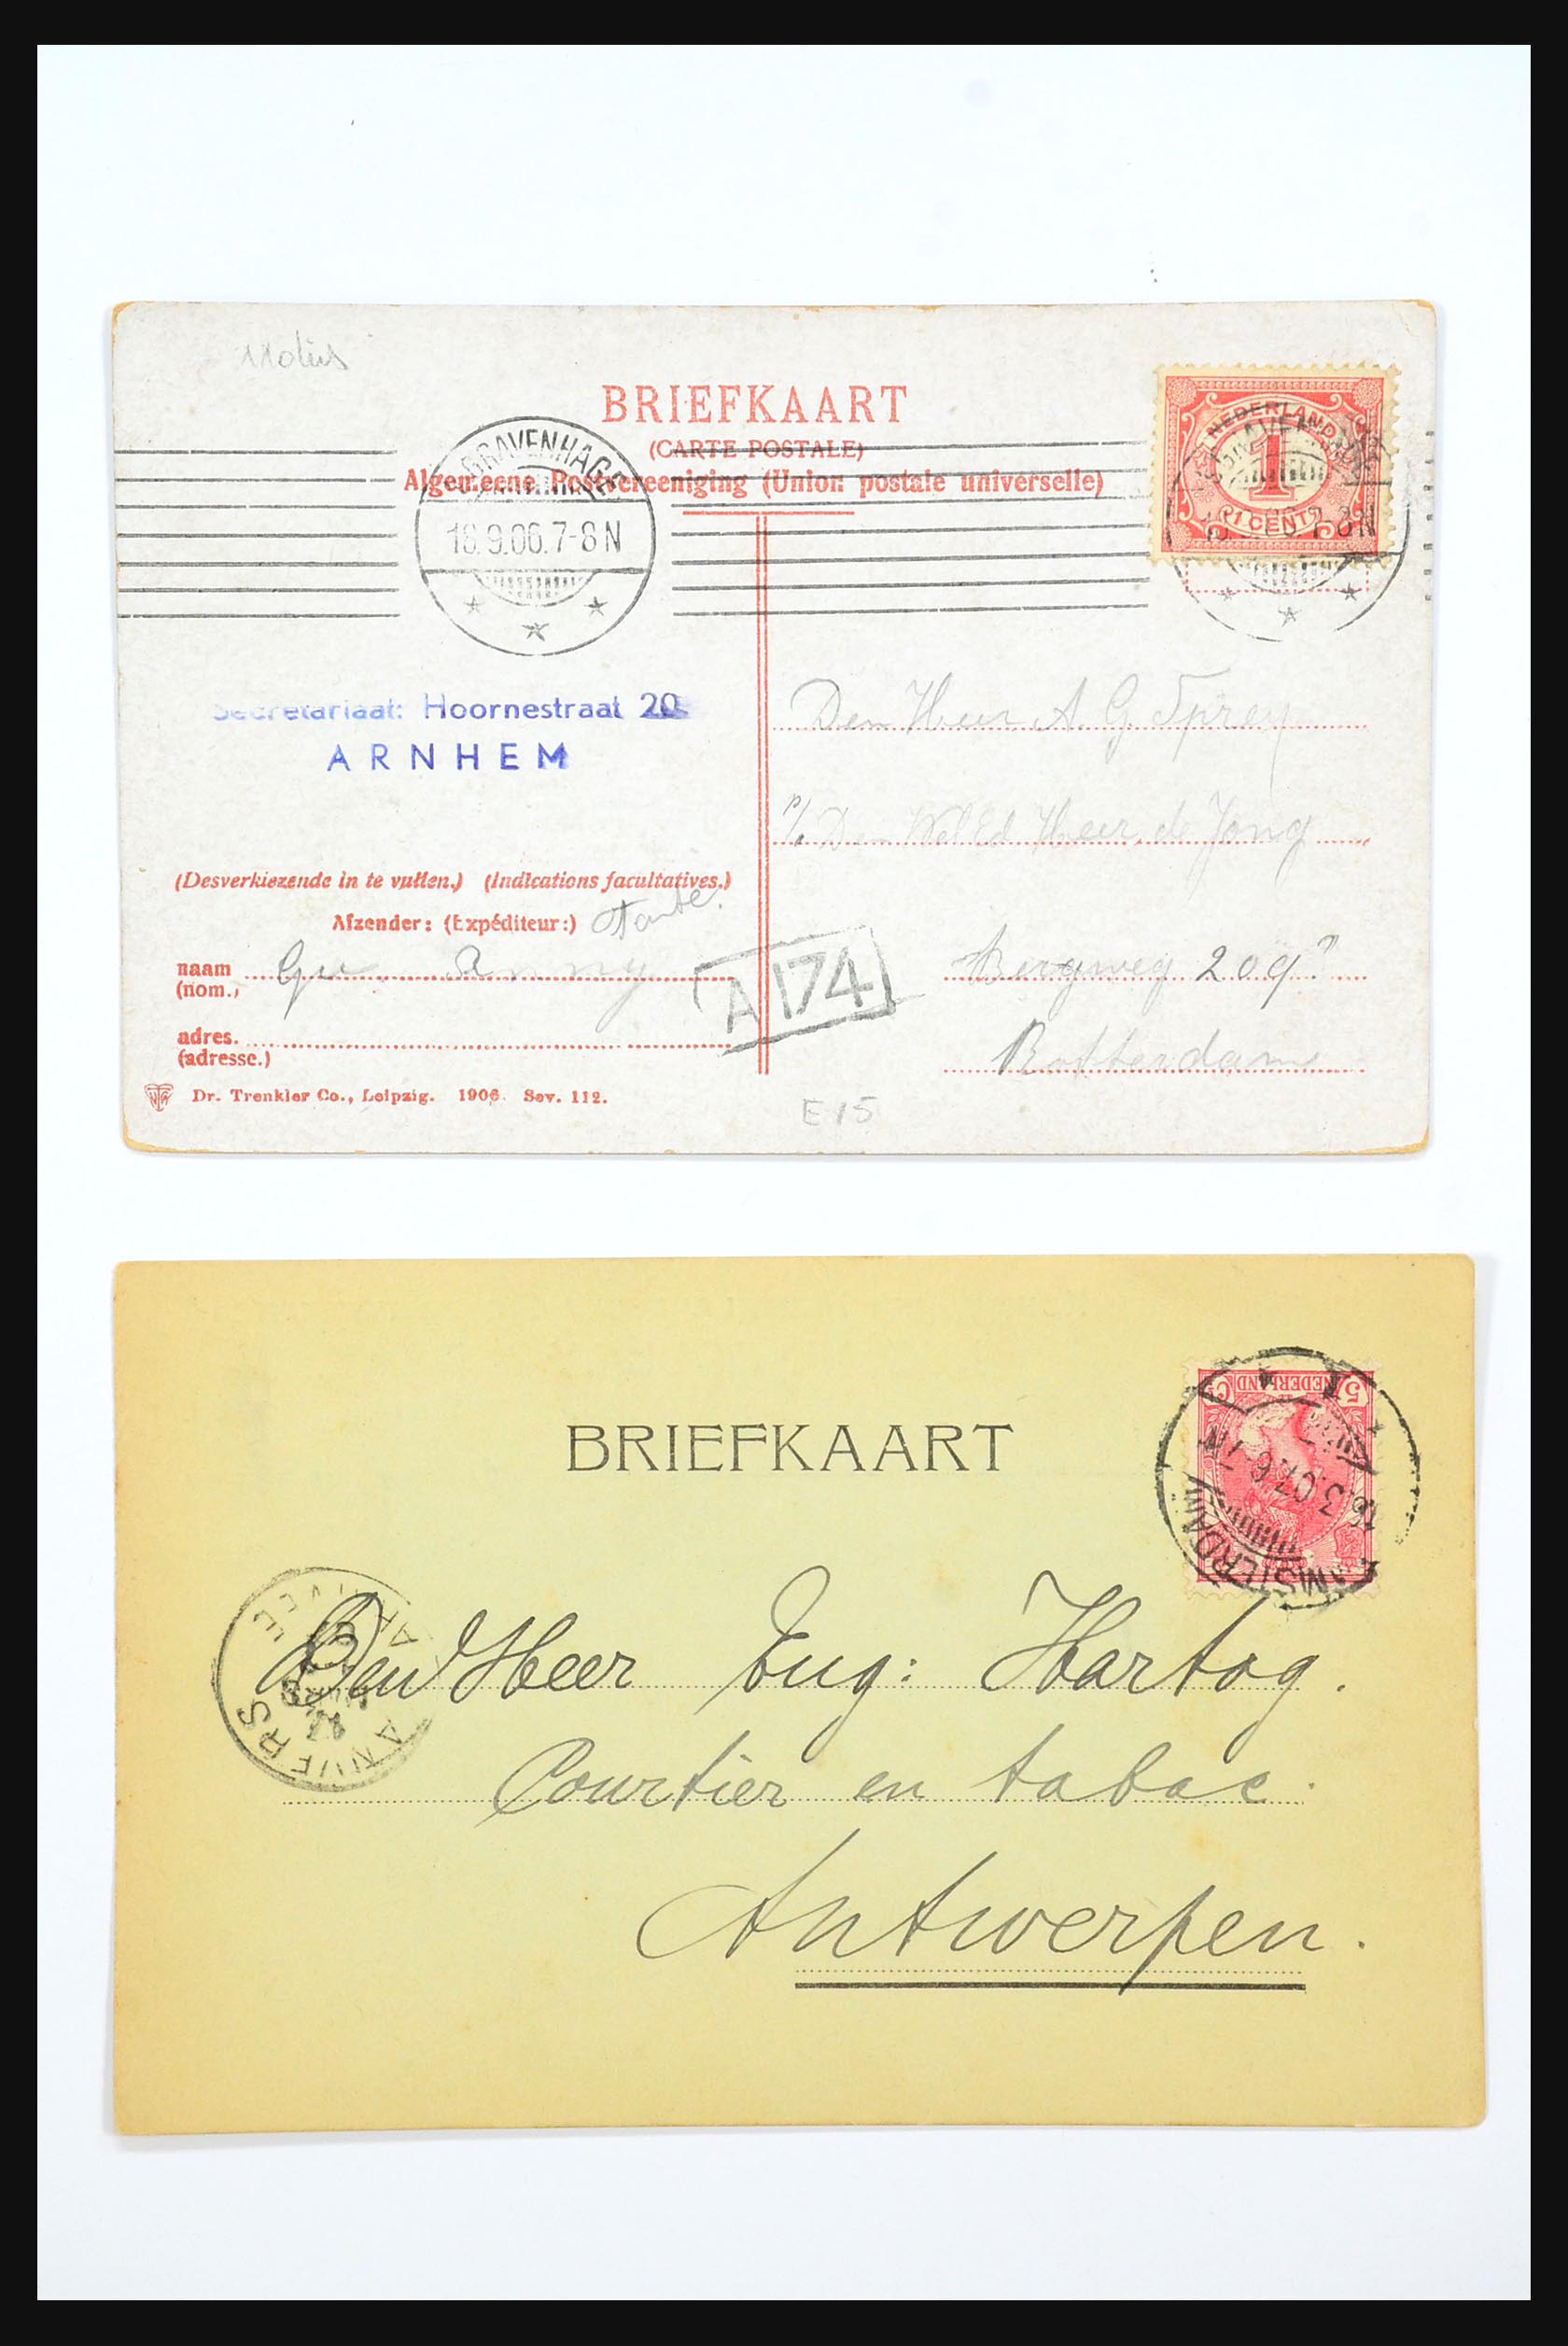 BRIEFKAART
(CARTE POSTALE)
Algemeene Postvereeniging (Union postale universelle)
GRAVENHAGE
18.9.06.7-8N
NEDERLAND
1
1 CENT
7-8N
Secretariaat: Hoornestraat 20
ARNHEM
Den Heer A. G. Sprey
p/ Den WelEd Heer de Jong
Bergweg 209
Rotterdam
(Desverkiezende in te vullen.) (Indications facultatives.)
Afzender: (Expéditeur:) Tante
naam
(nom.)
adres.
(adresse.)
A 174
Dr. Trenkler Co., Leipzig. 1906. Sev. 112.
E 15
BRIEFKAART
5 NEDERLAND Ct
AMSTERDAM
16.3.07.6-7N
ANVERS
Den Heer Eug: Hartog.
Courtier en tabac.
Antwerpen.